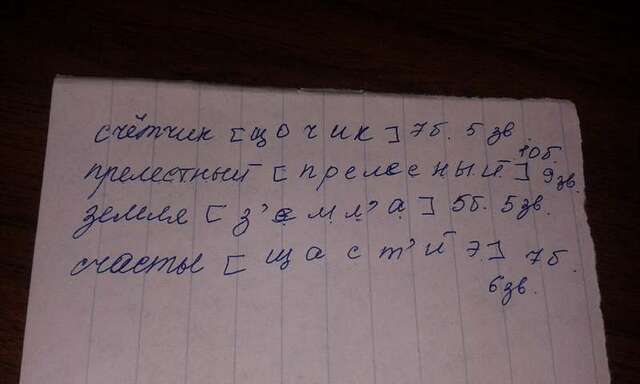 счётчик [щочик] 7б. 5 зв.
прелестный [прелесный] 10б. 9зв.
земля [з'емл'а] 5б. 5зв.
счасты [щаст'йэ] 7б.
6зв.